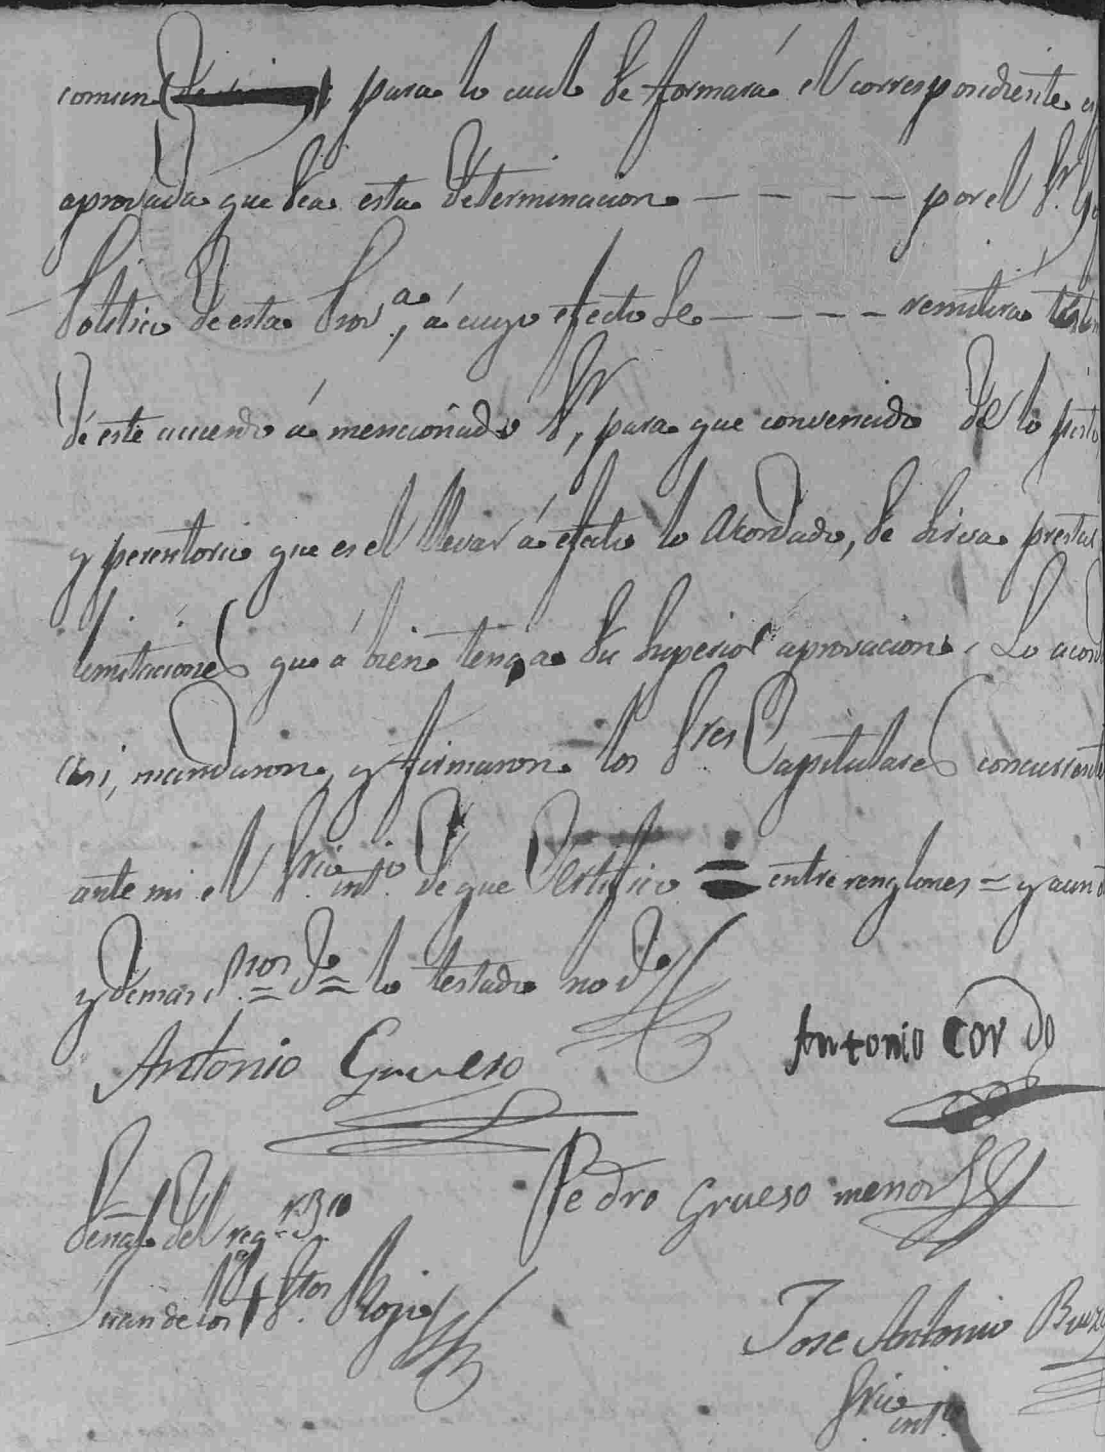 comun para lo cual se formará el correspondiente
aprovada que sea esta determinacion - - - - - por el Sr. 
Politico de esta Prova, á cuyo efecto se - - - - remitirá
de este acuerdo á mencionado Sr, para que convencido de lo
y perentorio que es el llevar á efecto lo acordado, se sirva prestar
limitaciones que á bien tenga su superior aprovacion. Lo
asi, mandaron, y firmaron los Sres Capitulares
ante mi el Srio intº de que Certifico = entre renglones = y aun
y demas = = lo testado no
Antonio Grueso
Antonio Cordo
Pedro Grueso menor
Señal del
Juan de los Stos Rojo
Jose Antonio
Srio intº